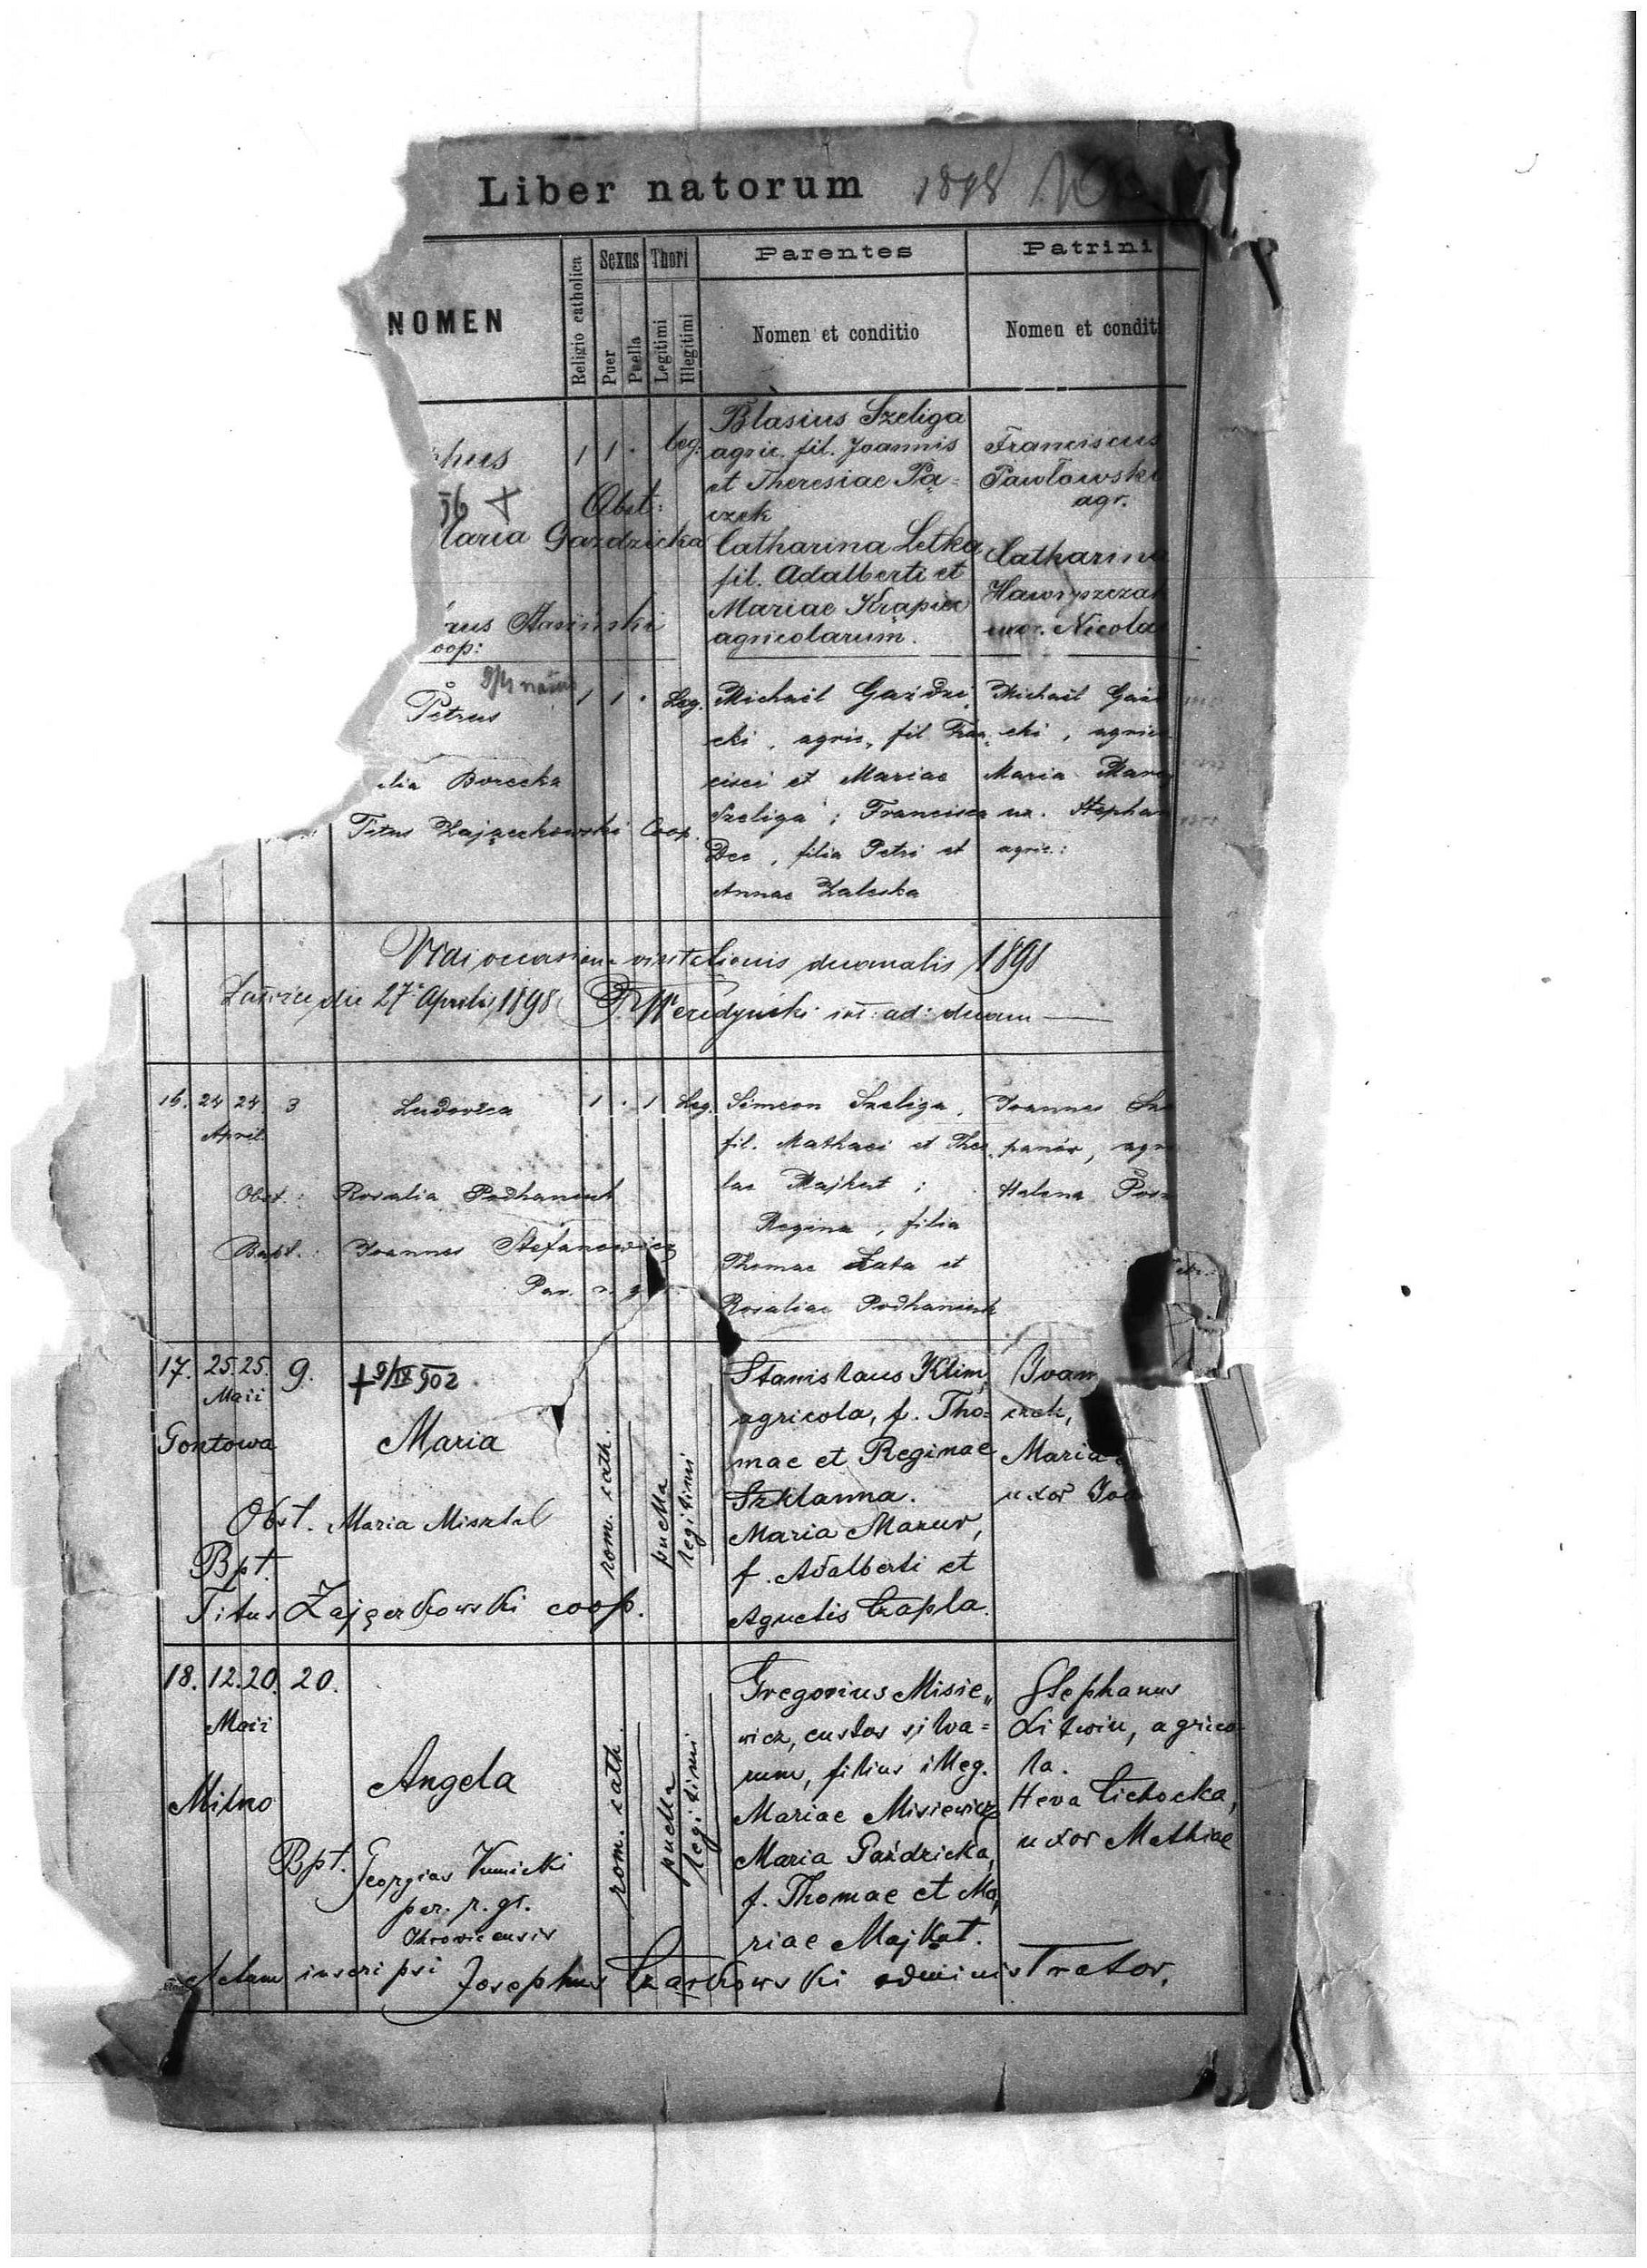 Liber natorum 1898
NOMEN
Religio catholica
Sexus
Puer
Puella
Thori
Legitimi
Illegitimi
Parentes
Nomen et conditio
Patrini
Nomen et condit
phus 1 1 · leg:
56 +
Obst:
Maria Gazdzicka
Stasiński
oop:
Blasius Szeliga
agric. fil. Joannis
et Theresiae Pą-
czek
Catharina Letka
fil. Adalberti et
Mariae Krąpiec
agricolarum.
Franciscus
Pawłowski
agr.
Catharina
uxor. Nicola
Petrus 1 1 · Leg.
lia Borecka
Titus Zajączkowski Coop.
Michaël Gaździ
cki, agric., fil Fran
cisci et Mariae
Szeliga; Francisca
Dec, filia Petri et
Annae Zaleska
Michaël Gaź
cki, agric
Maria
ux. Stephan
agric.:
Vidi occasione visitationis decanalis 1898
Załoźce die 27 Aprilis 1898
16. 24 24. 3 Ludovica 1 · 1 Leg.
April.
Obst.: Rosalia Podhaniuk
Bapt.: Joannes Stefanowicz
Par. r. g
Simeon Szeliga,
fil. Mathaei et The
lae Majkut;
Regina, filia
Thomae Łata et
Rosaliae Podhaniuk
Joannes
Helena
17. 25. 25. 9. + 9/IX 902
Maii
Gontowa Maria
rom. cath.
puella
legitimi
Obst. Maria Misztal
Bpt.
Titus Zajączkowski coop.
Stanislaus Klim,
agricola, f. Tho=
mae et Reginae
Szklanna.
Maria Mazur,
f. Adalberti et
Agnetis Czapla.
Joan
czek,
Maria
uxor Joa
18. 12. 20. 20.
Maii
Milno Angela
rom. cath.
puella
legitimi
Bpt. Georgius Kunicki
par. r. gr.
Gregorius Misie„
wicz, custos silva=
rum, filius illeg.
Mariae Misiewicz
Maria Gaździcka,
f. Thomae et Ma,
riae Majkut.
Stephanus
Litwin, agrico
la.
Heva Cichocka,
uxor Mathiae
Actum inscripsi Josephus Czarkowski administrator.